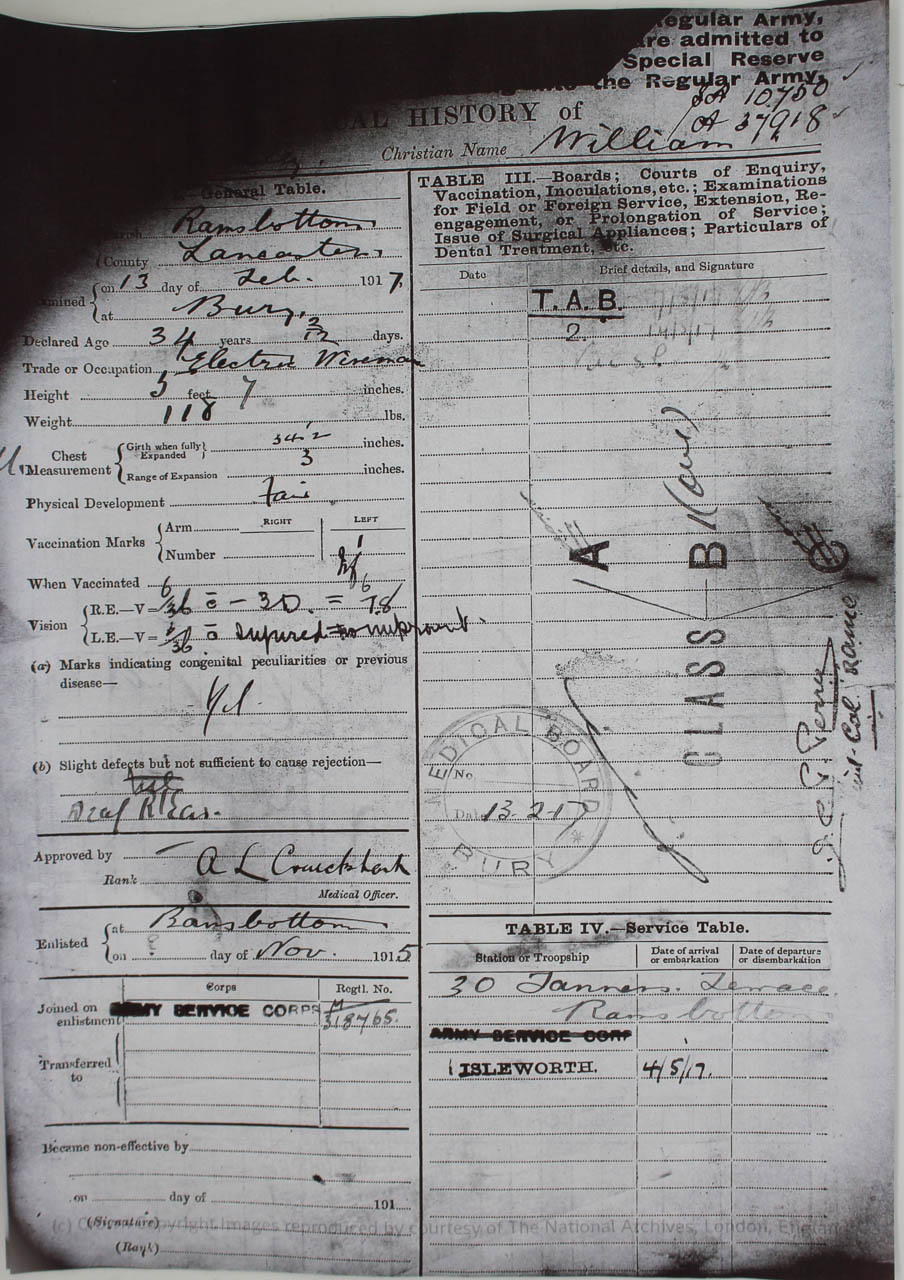 Regular Army,
are admitted to
Special Reserve
the Regular Army,
10.750
A 37918
HISTORY of
Christian Name William
General Table.
Ramsbottom
County Lancaster
on 13 day of Feb. 1917.
at Bury.
Declared Age 34 years 3/12 days.
Trade or Occupation Electric Wireman
Height 5 feet 7 inches.
Weight 118 lbs.
Chest Measurement { Girth when fully Expanded 34½ inches.
Range of Expansion 3 inches.
Physical Development Fair
RIGHT LEFT
Vaccination Marks { Arm 1
Number
When Vaccinated
Vision { R.E.—V= 6/36 c̄ - 3D. = 6/18
L.E.—V= 6/36 c̄
(a) Marks indicating congenital peculiarities or previous
disease—
Nil.
(b) Slight defects but not sufficient to cause rejection—
Deaf R Ear.
Approved by A L Cruickshank
Rank
Medical Officer.
Enlisted { at Ramsbottom
on ? day of Nov. 1915
Corps Regtl. No.
Joined on
enlistment ARMY SERVICE CORPS M/318765.
Transferred
to
Became non-effective by
on day of 191
(Signature)
(Rank)
TABLE III.—Boards; Courts of Enquiry,
Vaccination, Inoculations, etc.; Examinations
for Field or Foreign Service, Extension, Re-
engagement, or Prolongation of Service;
Issue of Surgical Appliances; Particulars of
Dental Treatment, etc.
Date Brief details, and Signature
T.A.B.
2.
A
B 1 (one)
CLASS
MEDICAL BOARD
No
Date 13-2-17
* BURY *
Col. RAMC
TABLE IV.—Service Table.
Station or Troopship Date of arrival or embarkation Date of departure or disembarkation
30 Tanners Terrace
Ramsbottom
ARMY SERVICE CORP
ISLEWORTH. 4/5/17.
(c) Crown Copyright Images reproduced by courtesy of The National Archives, London, England